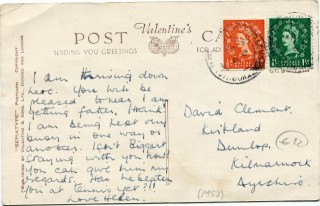 Valentine's
POST CA
SENDING YOU GREETINGS FOR AD
I am thriving down
here. You will be
pleased to hear I am
getting fatter, I think!
I am being kept very
busy in one way or
another. Isn't Biggar
staying with you now?
you can give him my
regards. Has he beaten
you at tennis yet?!!
Love Helen.
David Clement,
Kirkland
Dunlop,
Kilmarnock
Ayrshire.
£12
(1953)